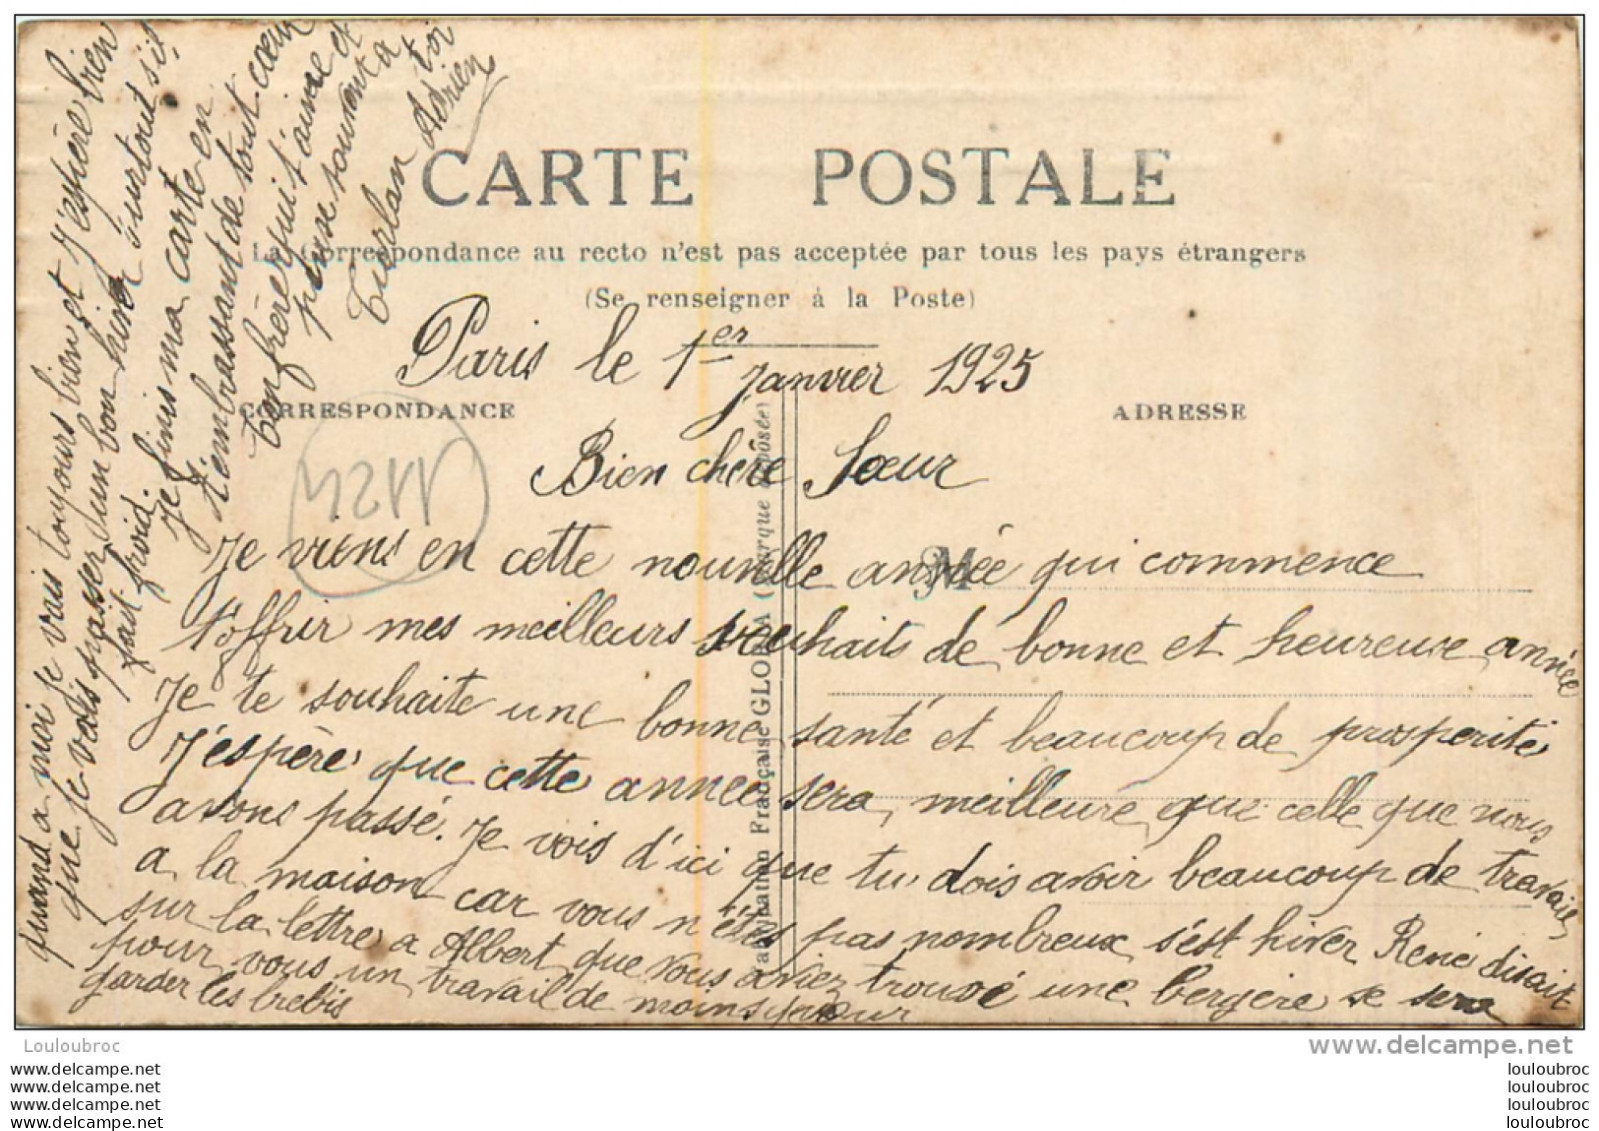 CARTE POSTALE
La Correspondance au recto n'est pas acceptée par tous les pays étrangers
(Se renseigner à la Poste)
CORRESPONDANCE
ADRESSE
Paris le 1er janvier 1925
Bien chère Sœur
Je viens en cette nouvelle année qui commence
t'offrir mes meilleurs souhaits de bonne et heureuse année
Je te souhaite une bonne santé et beaucoup de prosperité
J'espère que cette année sera meilleure que celle que nous
avons passé. Je vois d'ici que tu dois avoir beaucoup de travail
a la maison car vous n'étes pas nombreux s'est hiver René disait
sur la lettre a Albert que vous aviez trouvé une bergère se sera
pour vous un travail de moins pour
garder les brebis
quand a moi je vais toujours bien et J'espère bien
que je vais passer un bon hiver surtout s'il
fait froid.
Je finis ma carte en
t'embrassant de tout cœur
Ton frère qui t'aime et
pense souvent a
toi
Turlan Adrien
M
Fabrication Française GLORIA (Marque déposée)
4211
www.delcampe.net
Louloubroc
www.delcampe.net
www.delcampe.net
www.delcampe.net
www.delcampe.net
louloubroc
louloubroc
louloubroc
louloubroc